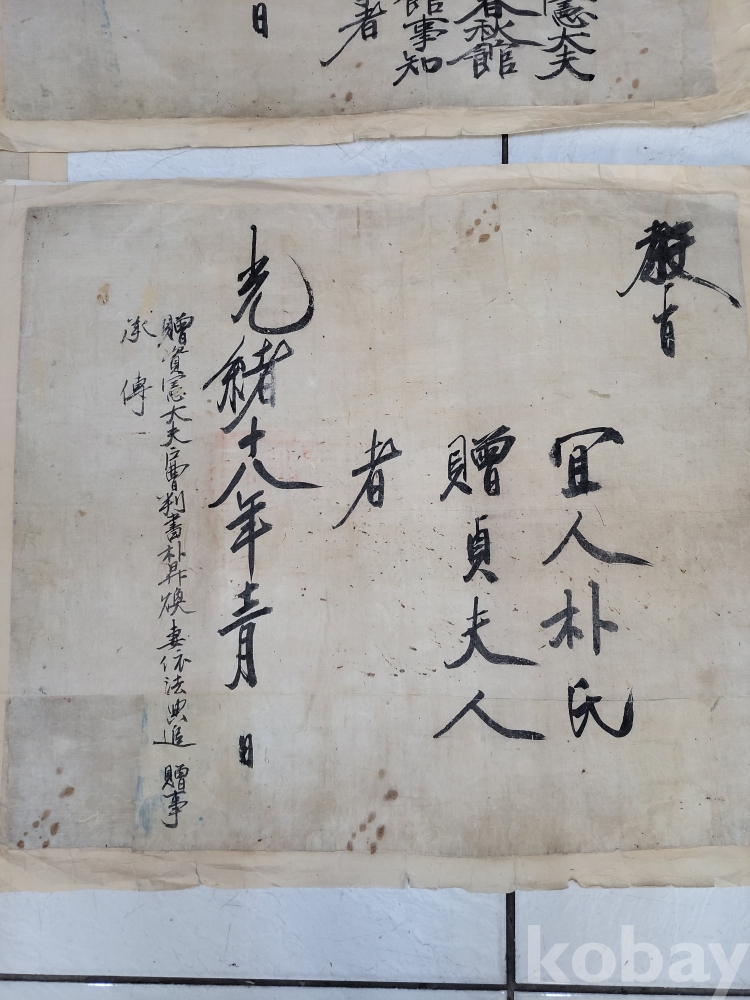 憲大夫
春秋館
館事知
者
日
敎旨
宜人朴氏
贈貞夫人
者
光緖十八年十二月 日
贈資憲大夫戶曹判書朴昇煥妻依法典追 贈事
承 傳
kobay